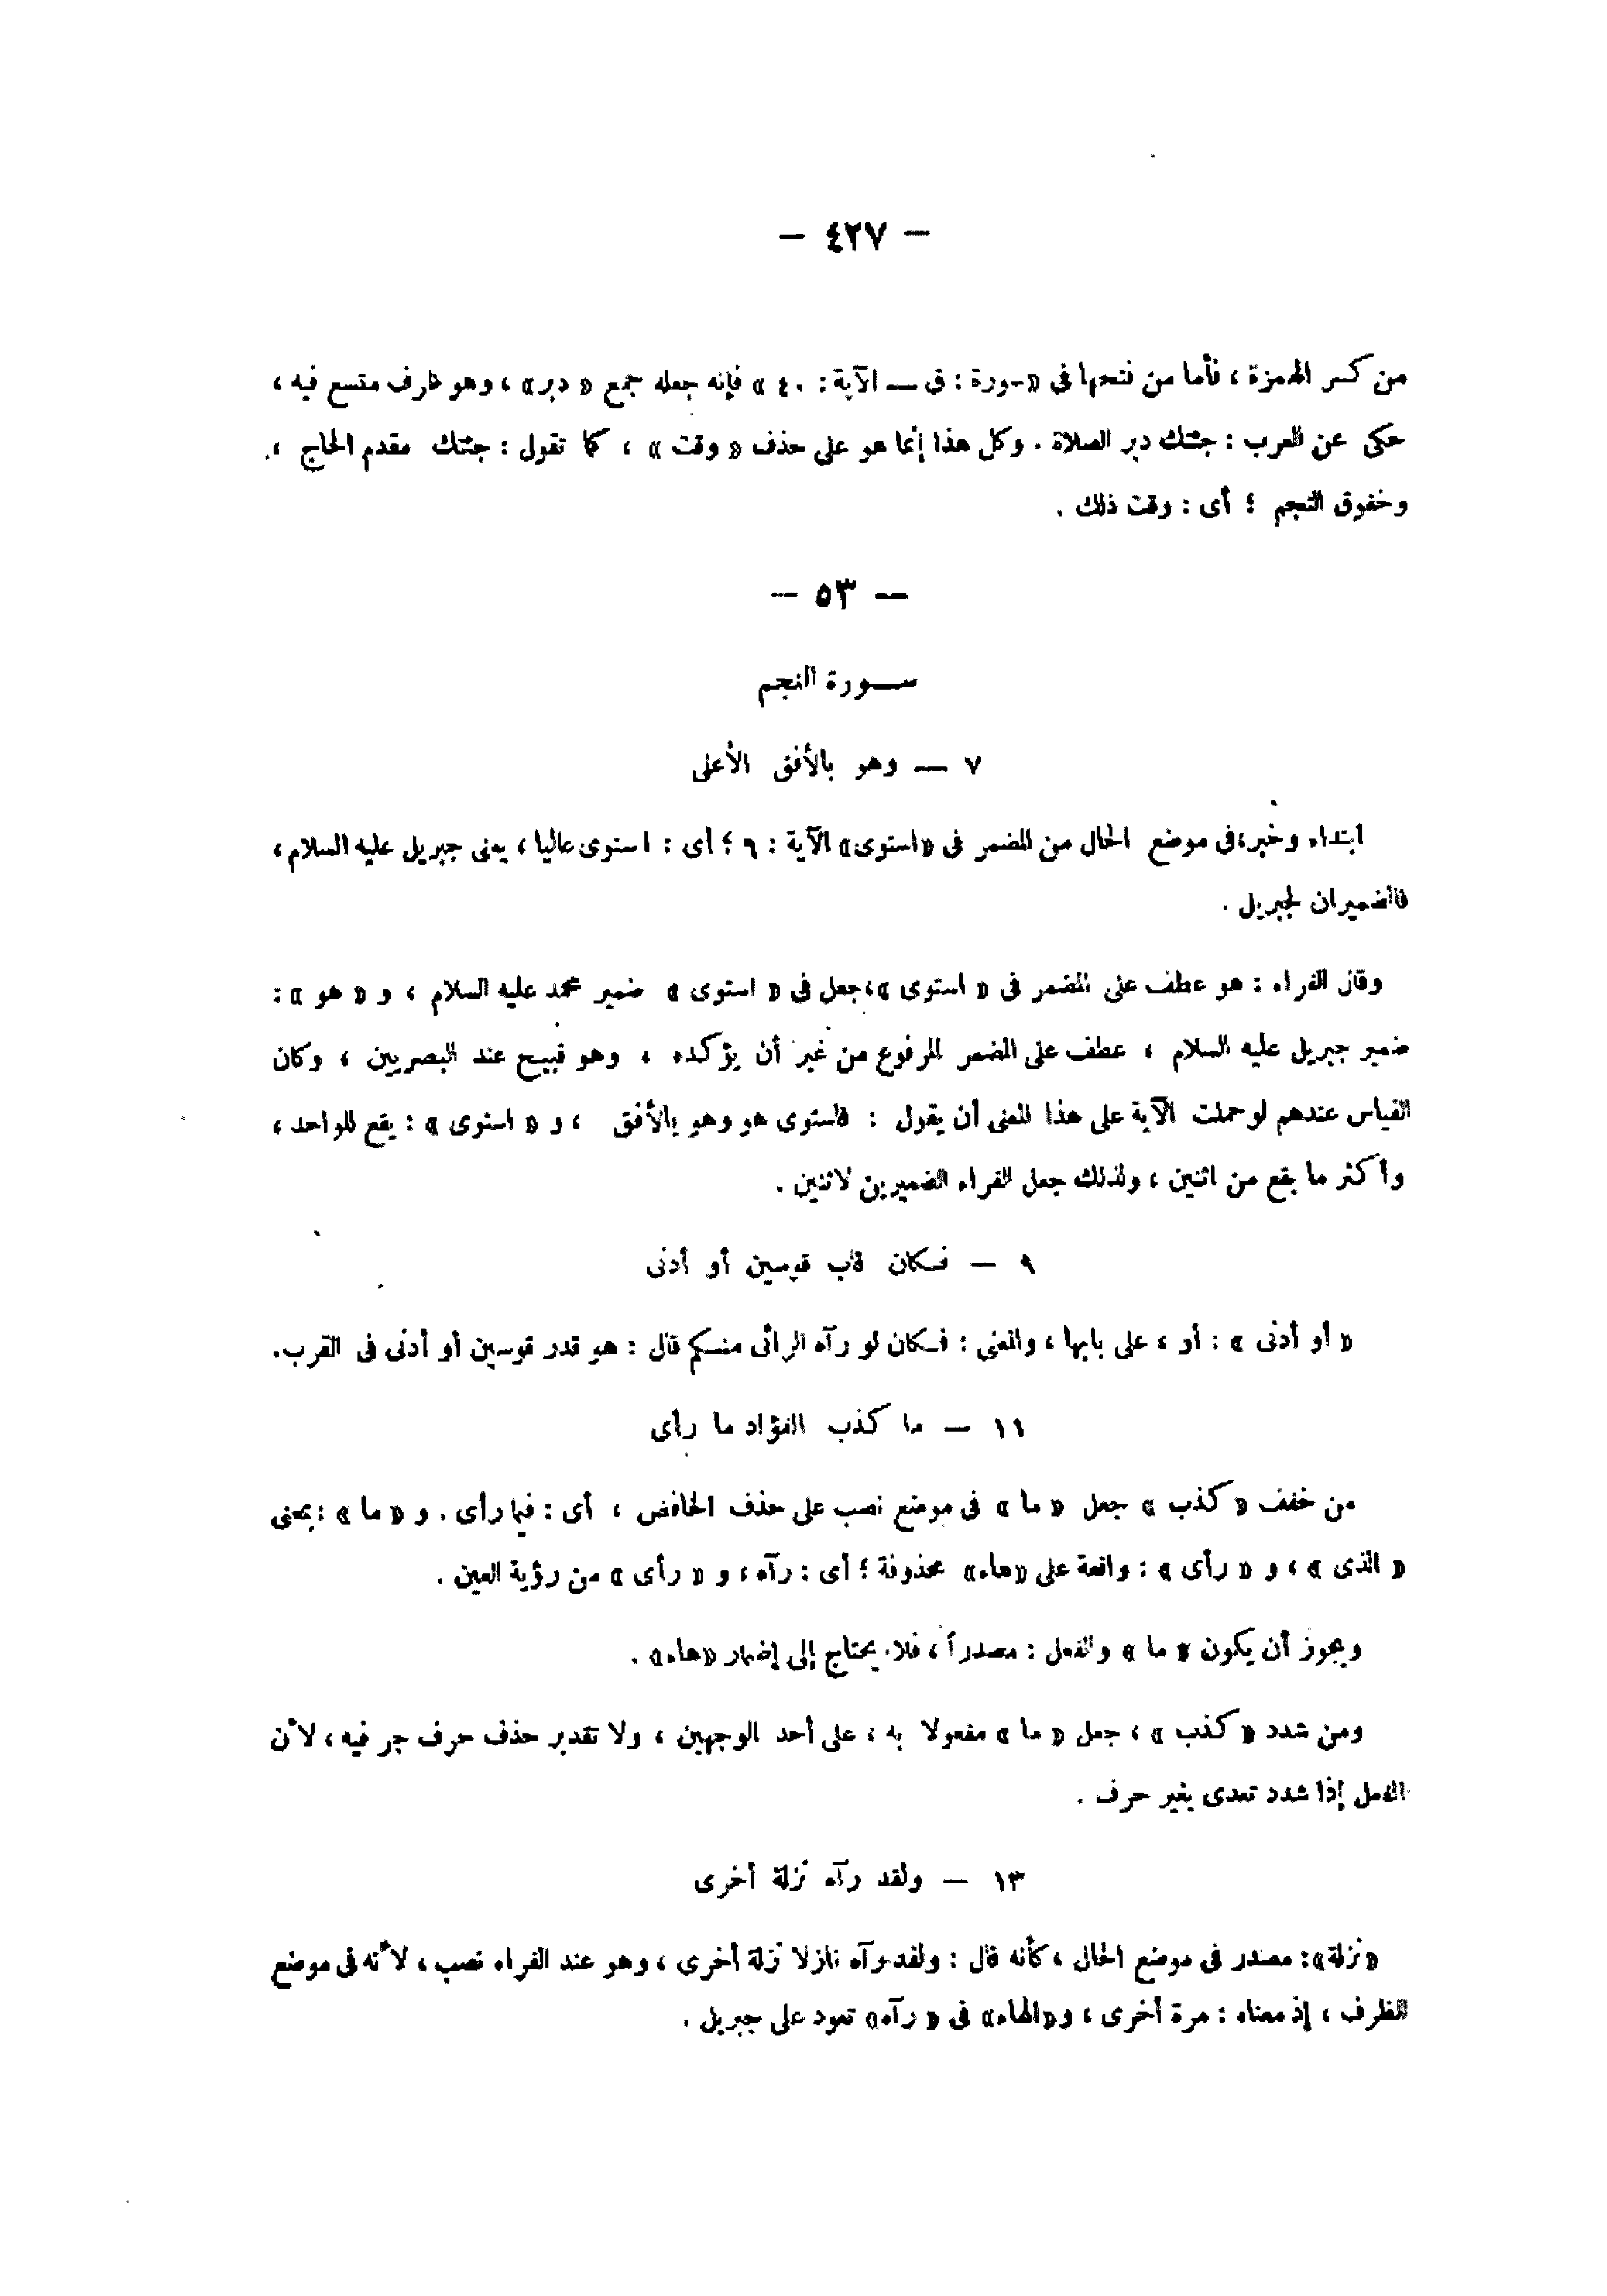 — ٤٢٧ —
من كسر الهمزة ، فأما من فتحها فى «سورة : ق — الآية : ٤٠ » فإنه جعله جمع « دبر» ، وهو ظرف متسع فيه ،
حكى عن العرب : جئتك دبر الصلاة . وكل هذا إنما هو على حذف « وقت » ، كما تقول : جئتك مقدم الحاج ،
وخفوق النجم ؛ أى : وقت ذلك .
— ٥٣ —
سورة النجم
٧ — وهو بالأفق الأعلى
ابتداء وخبر،فى موضع الحال من المضمر فى «استوى» الآية : ٦ ؛ أى : استوى عاليا ، يعنى جبريل عليه السلام ،
فالضميران لجبريل .
وقال الفراء : هو عطف على المضمر فى « استوى »،جعل فى « استوى » ضمير محمد عليه السلام ، و « هو » :
ضمير جبريل عليه السلام ، عطف على المضمر المرفوع من غير أن يؤكده ، وهو قبيح عند البصريين ، وكان
القياس عندهم لو حملت الآية على هذا المعنى أن يقول : فاستوى هو وهو بالأفق ، و « استوى » : يقع للواحد ،
وأكثر ما يقع من اثنين ، ولذلك جعل الفراء الضميرين لاثنين .
٩ — فكان قاب قوسين أو أدنى
« أو أدنى » : أو ، على بابها ، والمعنى : فكان لو رآه الرائى منكم قال : هو قدر قوسين أو أدنى فى القرب.
١١ — ما كذب الفؤاد ما رأى
من خفف « كذب » جعل « ما » فى موضع نصب على حذف الخافض ، أى : فيما رأى . و « ما » : بمعنى
« الذى » ، و « رأى » : واقعة على «هاء» محذوفة ؛ أى : رآه ، و « رأى » من رؤية العين .
ويجوز أن يكون « ما » والفعل : مصدراً ، فلا يحتاج إلى إضمار «هاء» .
ومن شدد « كذب » ، جعل « ما » مفعولا به ، على أحد الوجهين ، ولا تقدير حذف حرف جر فيه ، لأن
الفعل إذا شدد تعدى بغير حرف .
١٣ — ولقد رآه نزلة أخرى
«نزلة»: مصدر فى موضع الحال ، كأنه قال : ولقد رآه نازلا نزلة أخرى ، وهو عند الفراء نصب ، لأنه فى موضع
الظرف ، إذ معناه : مرة أخرى ، و«الهاء» فى « رآه» تعود على جبريل .